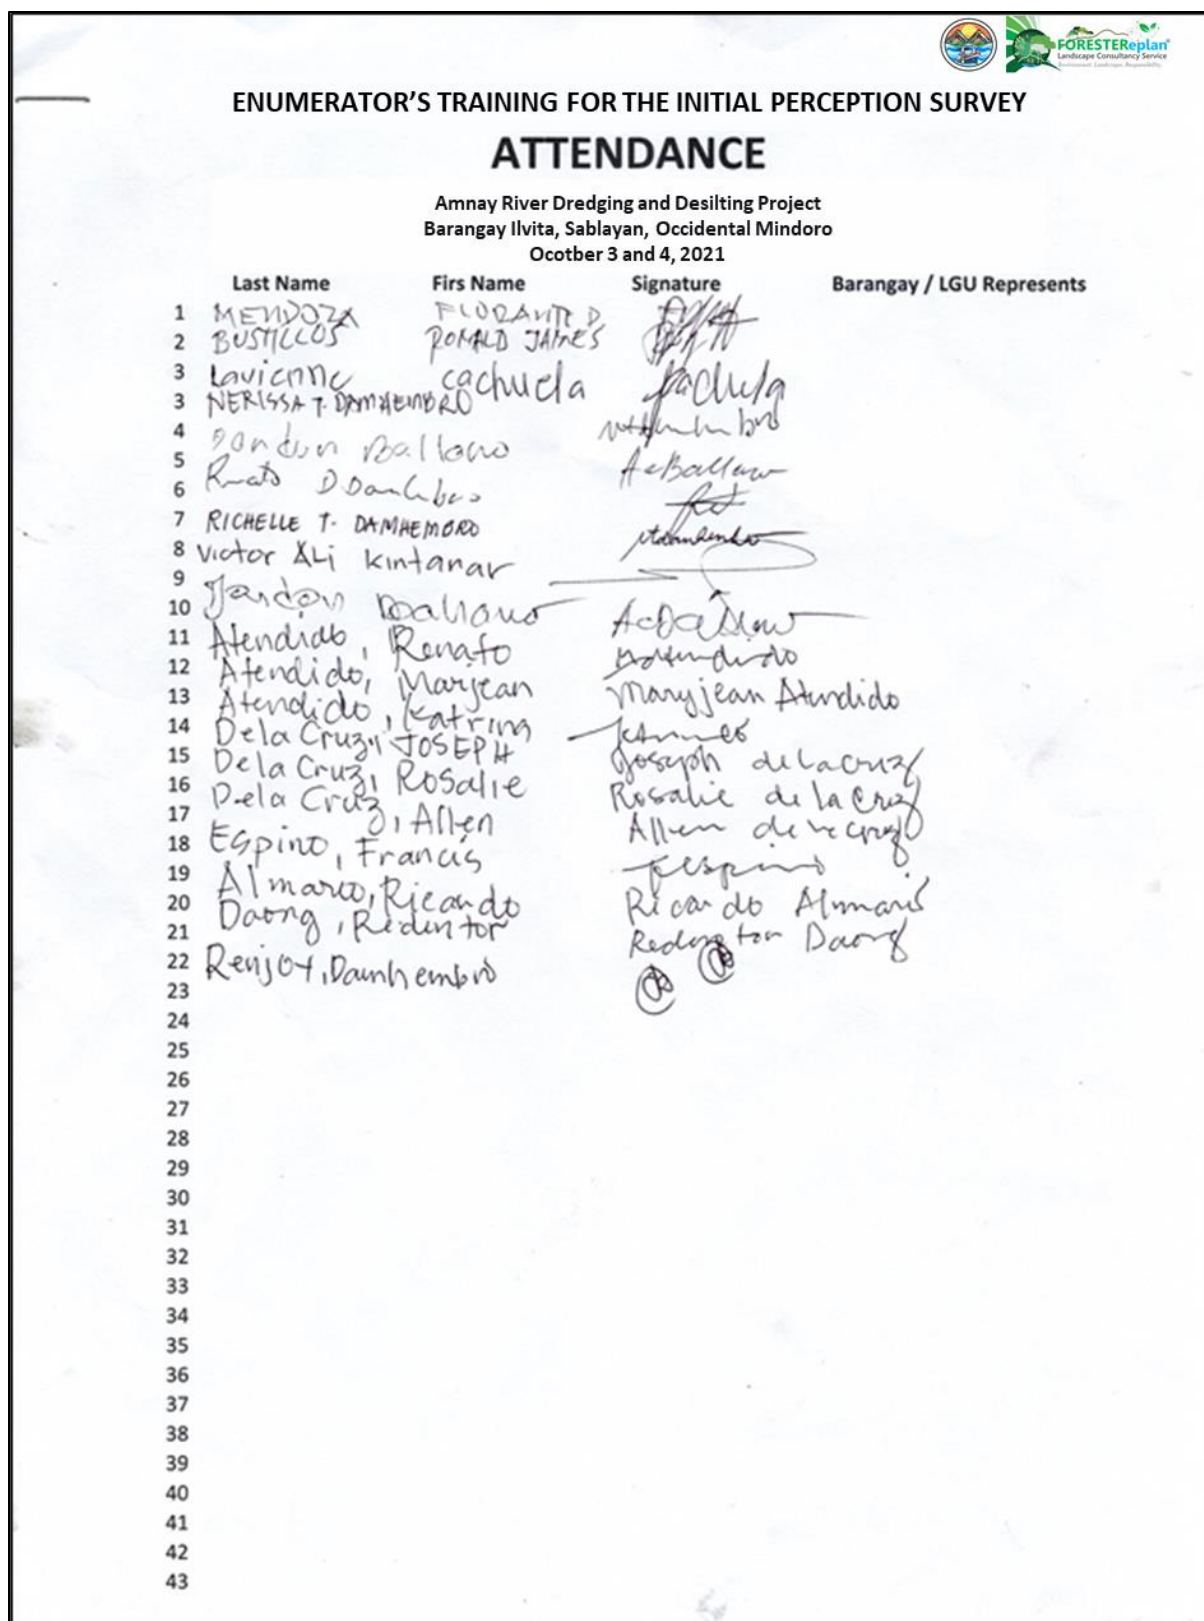 FORESTEReplan
Landscape Consultancy Service
Environment. Landscape. Responsibility.
ENUMERATOR'S TRAINING FOR THE INITIAL PERCEPTION SURVEY
ATTENDANCE
Amnay River Dredging and Desilting Project
Barangay Ilvita, Sablayan, Occidental Mindoro
Ocotber 3 and 4, 2021
Last Name Firs Name Signature Barangay / LGU Represents
1 MENDOZA FLORANTE D
2 BUSTILLOS RONALD JAMES
3 Lavienne cachuela
3 NERISSA T. DAMHEMBRO
4
5 Dandon Ballano
6 D
7 RICHELLE T. DAMHEMBRO
8 Victor ALi Kintanar
9
10 Dandon Ballano
11 Atendido, Renato
12 Atendido, Marjean Maryjean Atendido
13 Atendido, Katrina
14 Dela Cruz, JOSEPH Joseph dela cruz
15 Dela Cruz, Rosalie Rosalie de la Cruz
16 Dela Cruz, Allen Allen
17
18 Espino, Francis
19 Almarco, Ricardo Ricardo
20 Daong, Redentor Redentor Daong
21
22 Renjoy, Damhembro
23
24
25
26
27
28
29
30
31
32
33
34
35
36
37
38
39
40
41
42
43